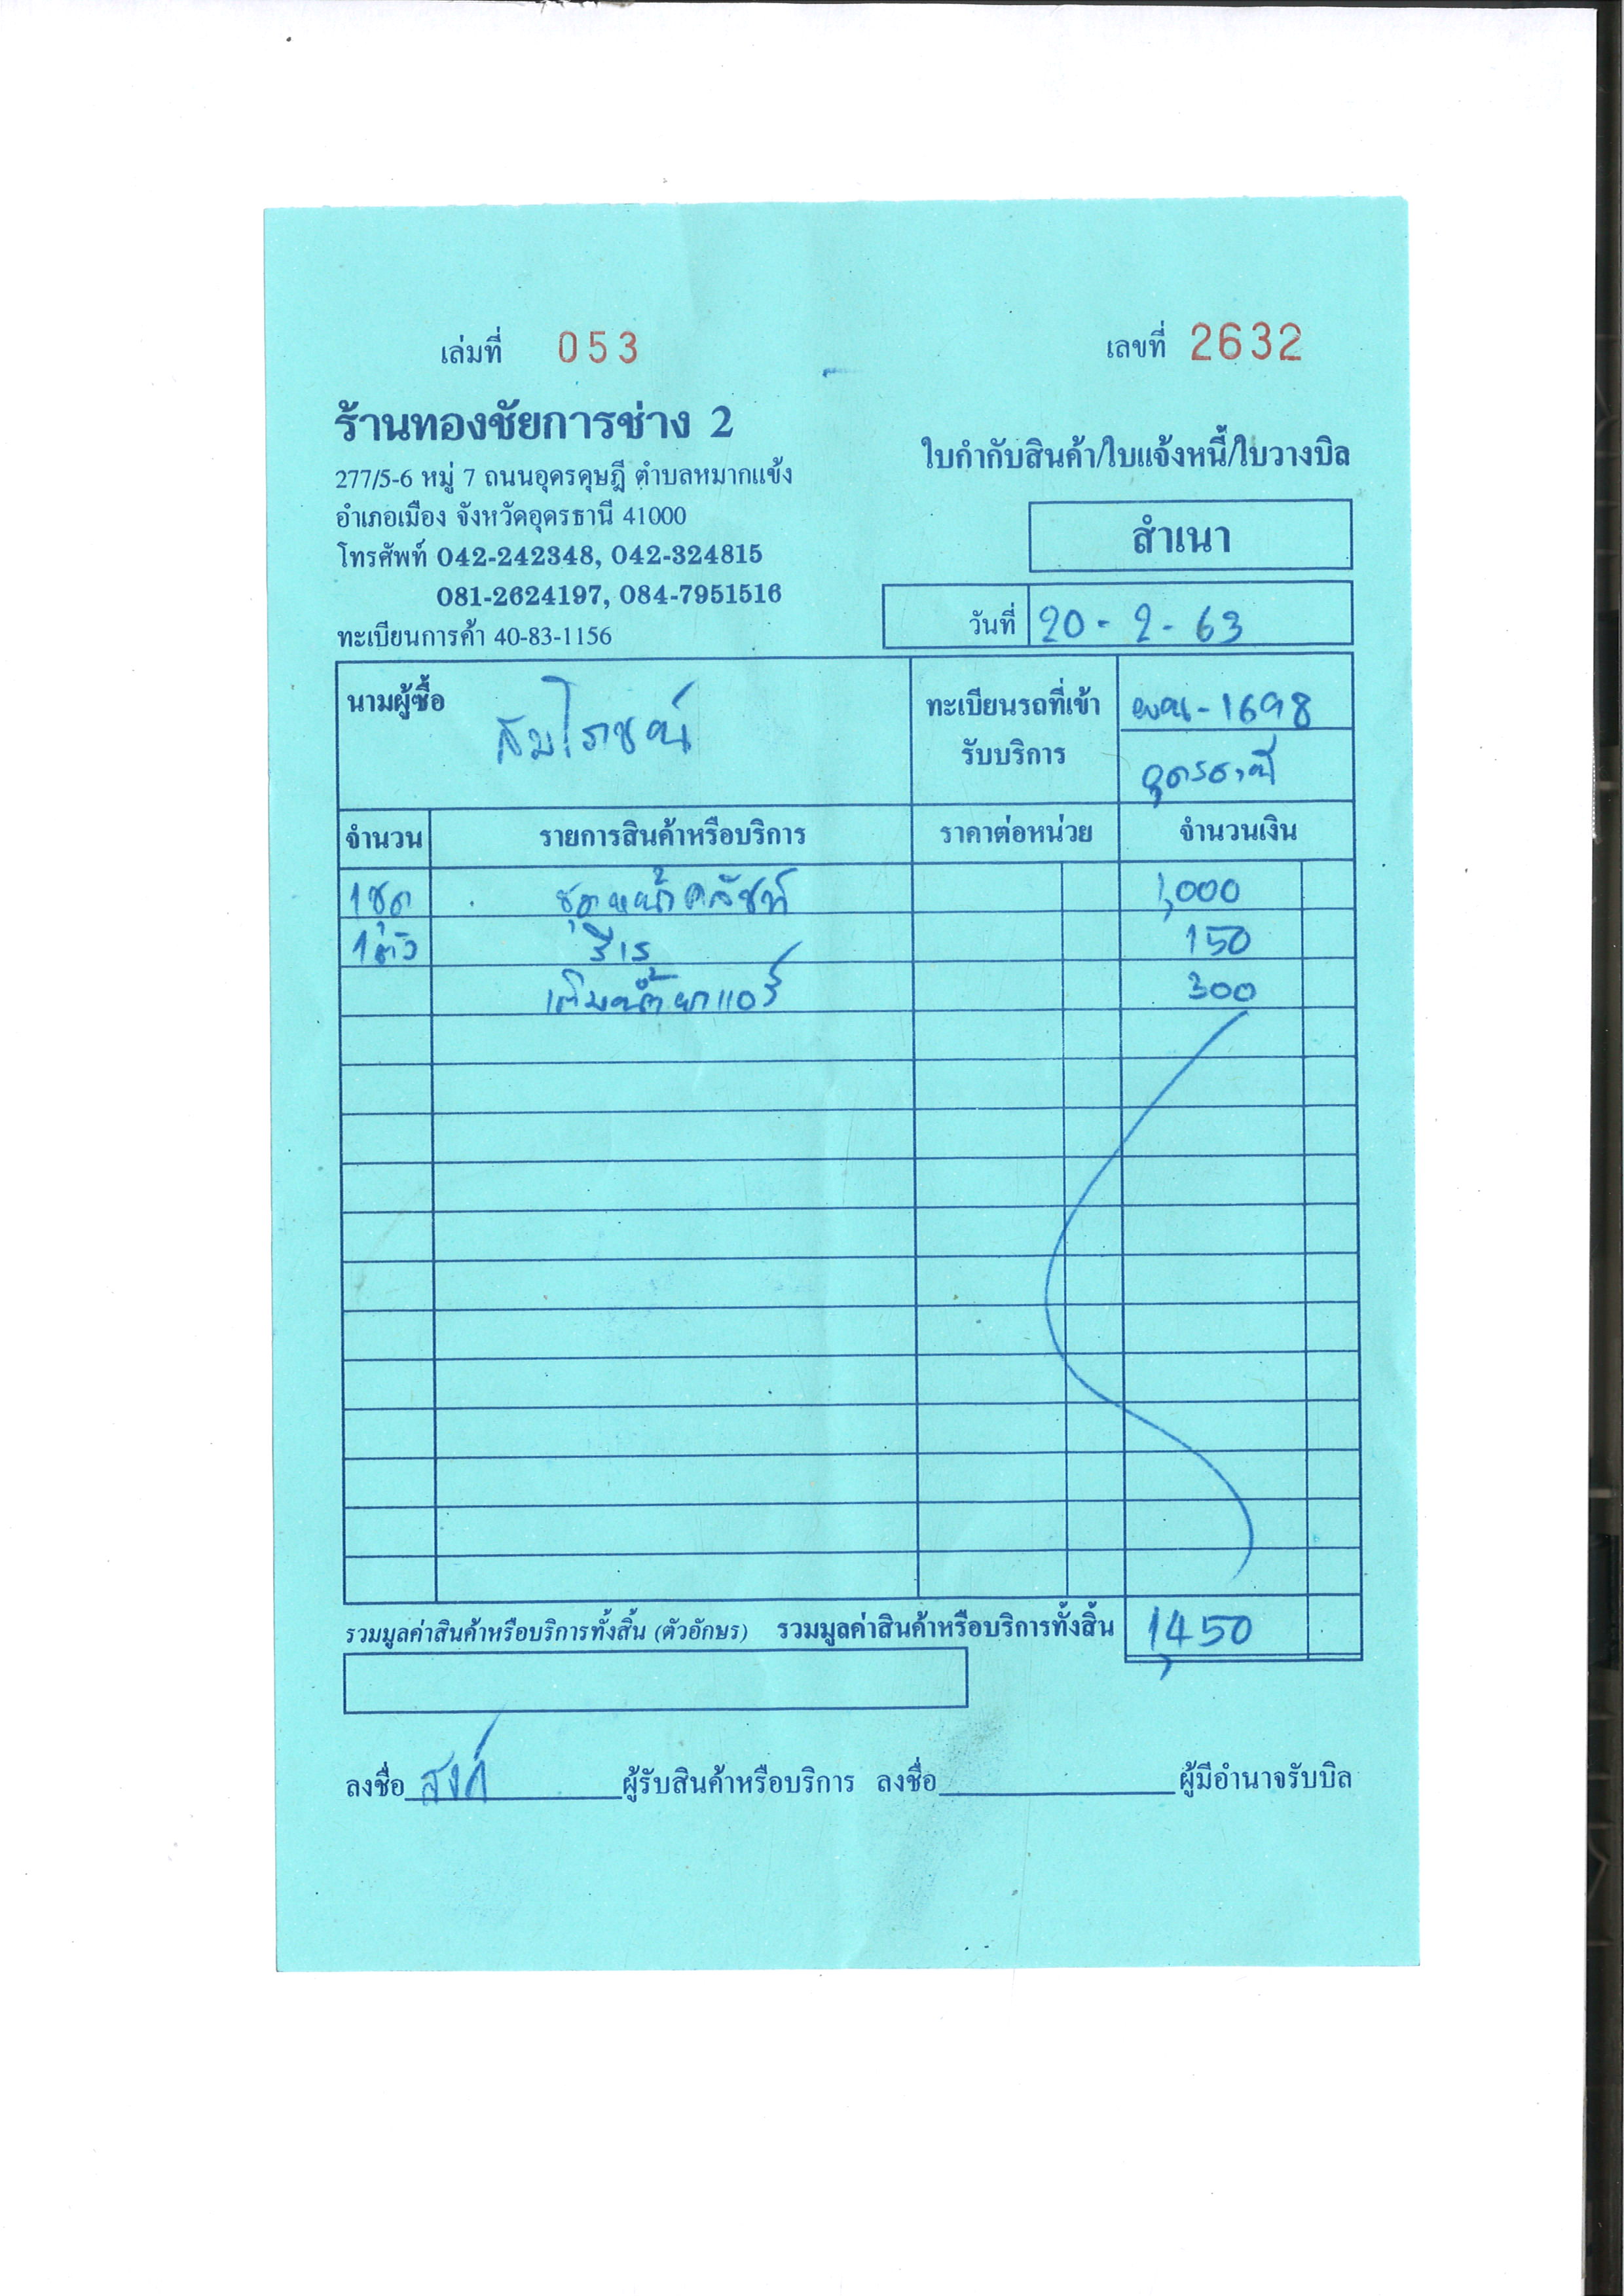 เล่มที่ 053
เลขที่ 2632
ร้านทองชัยการช่าง 2
277/5-6 หมู่ 7 ถนนอุดรดุษฎี ตำบลหมากแข้ง
อำเภอเมือง จังหวัดอุดรธานี 41000
โทรศัพท์ 042-242348, 042-324815
081-2624197, 084-7951516
ทะเบียนการค้า 40-83-1156
ใบกำกับสินค้า/ใบแจ้งหนี้/ใบวางบิล
สำเนา
วันที่ 20 - 2 - 63
นามผู้ซื้อ สมโภชน์
ทะเบียนรถที่เข้า -1698
รับบริการ อุดรธานี
จำนวน รายการสินค้าหรือบริการ ราคาต่อหน่วย จำนวนเงิน
1ชุด ชุดหน้าคลัชท์ 1,000
1ตัว รีเร 150
เติมน้ำยาแอร์ 300
รวมมูลค่าสินค้าหรือบริการทั้งสิ้น (ตัวอักษร) รวมมูลค่าสินค้าหรือบริการทั้งสิ้น 1,450
ลงชื่อ ผู้รับสินค้าหรือบริการ ลงชื่อ ผู้มีอำนาจรับบิล